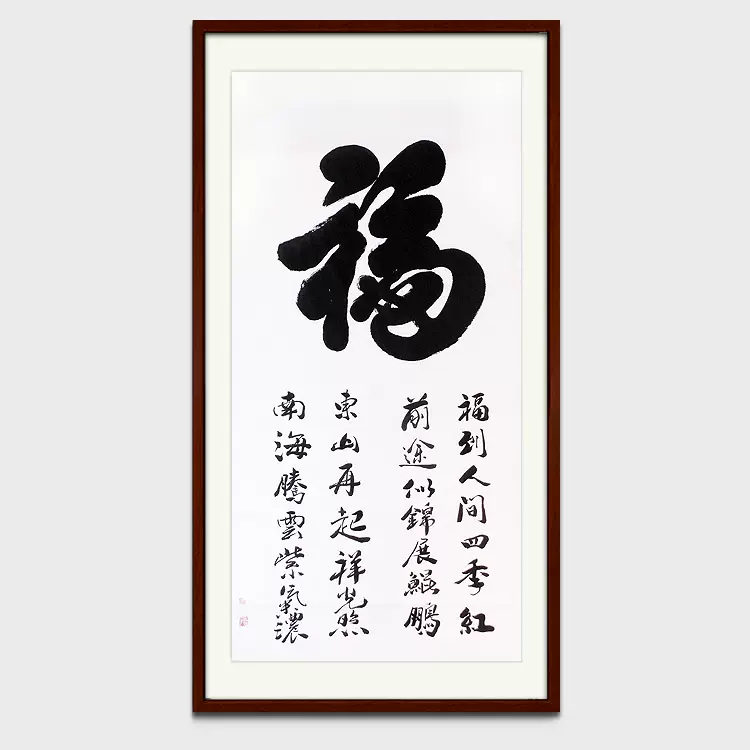 福
福到人间四季红
前途似錦展鯤鵬
東山再起祥光照
南海騰雲紫氣濃